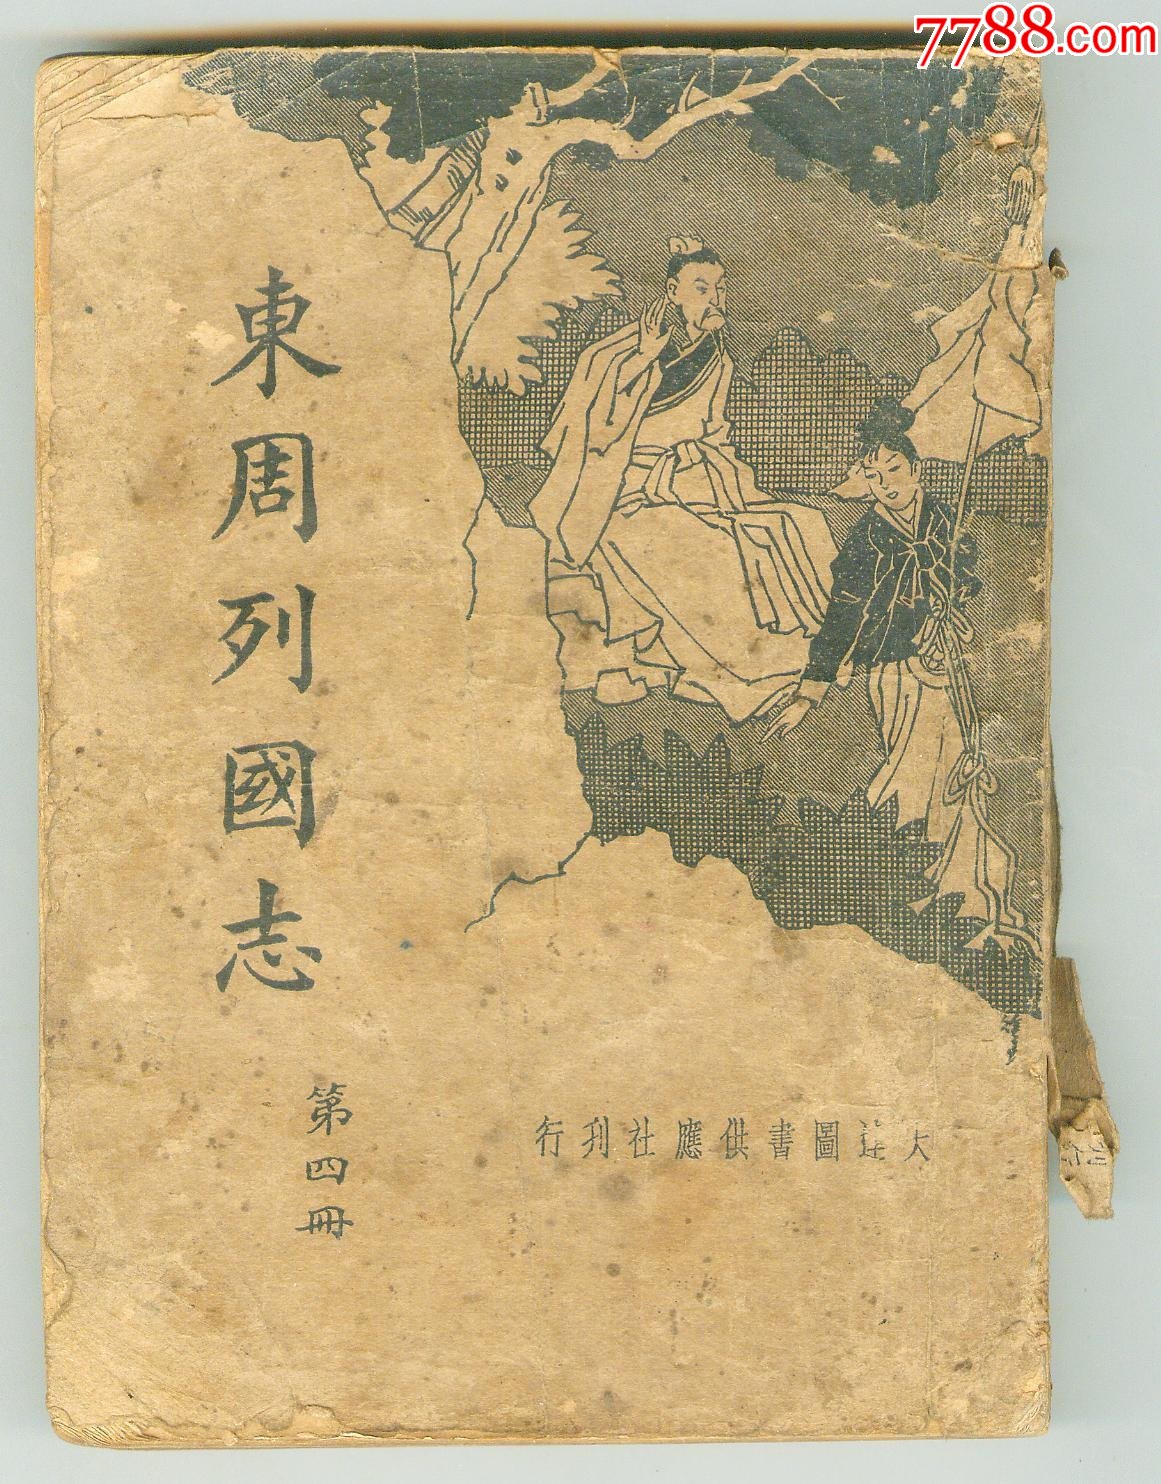 7788.com
東周列國志
第四冊
大達圖書供應社刊行